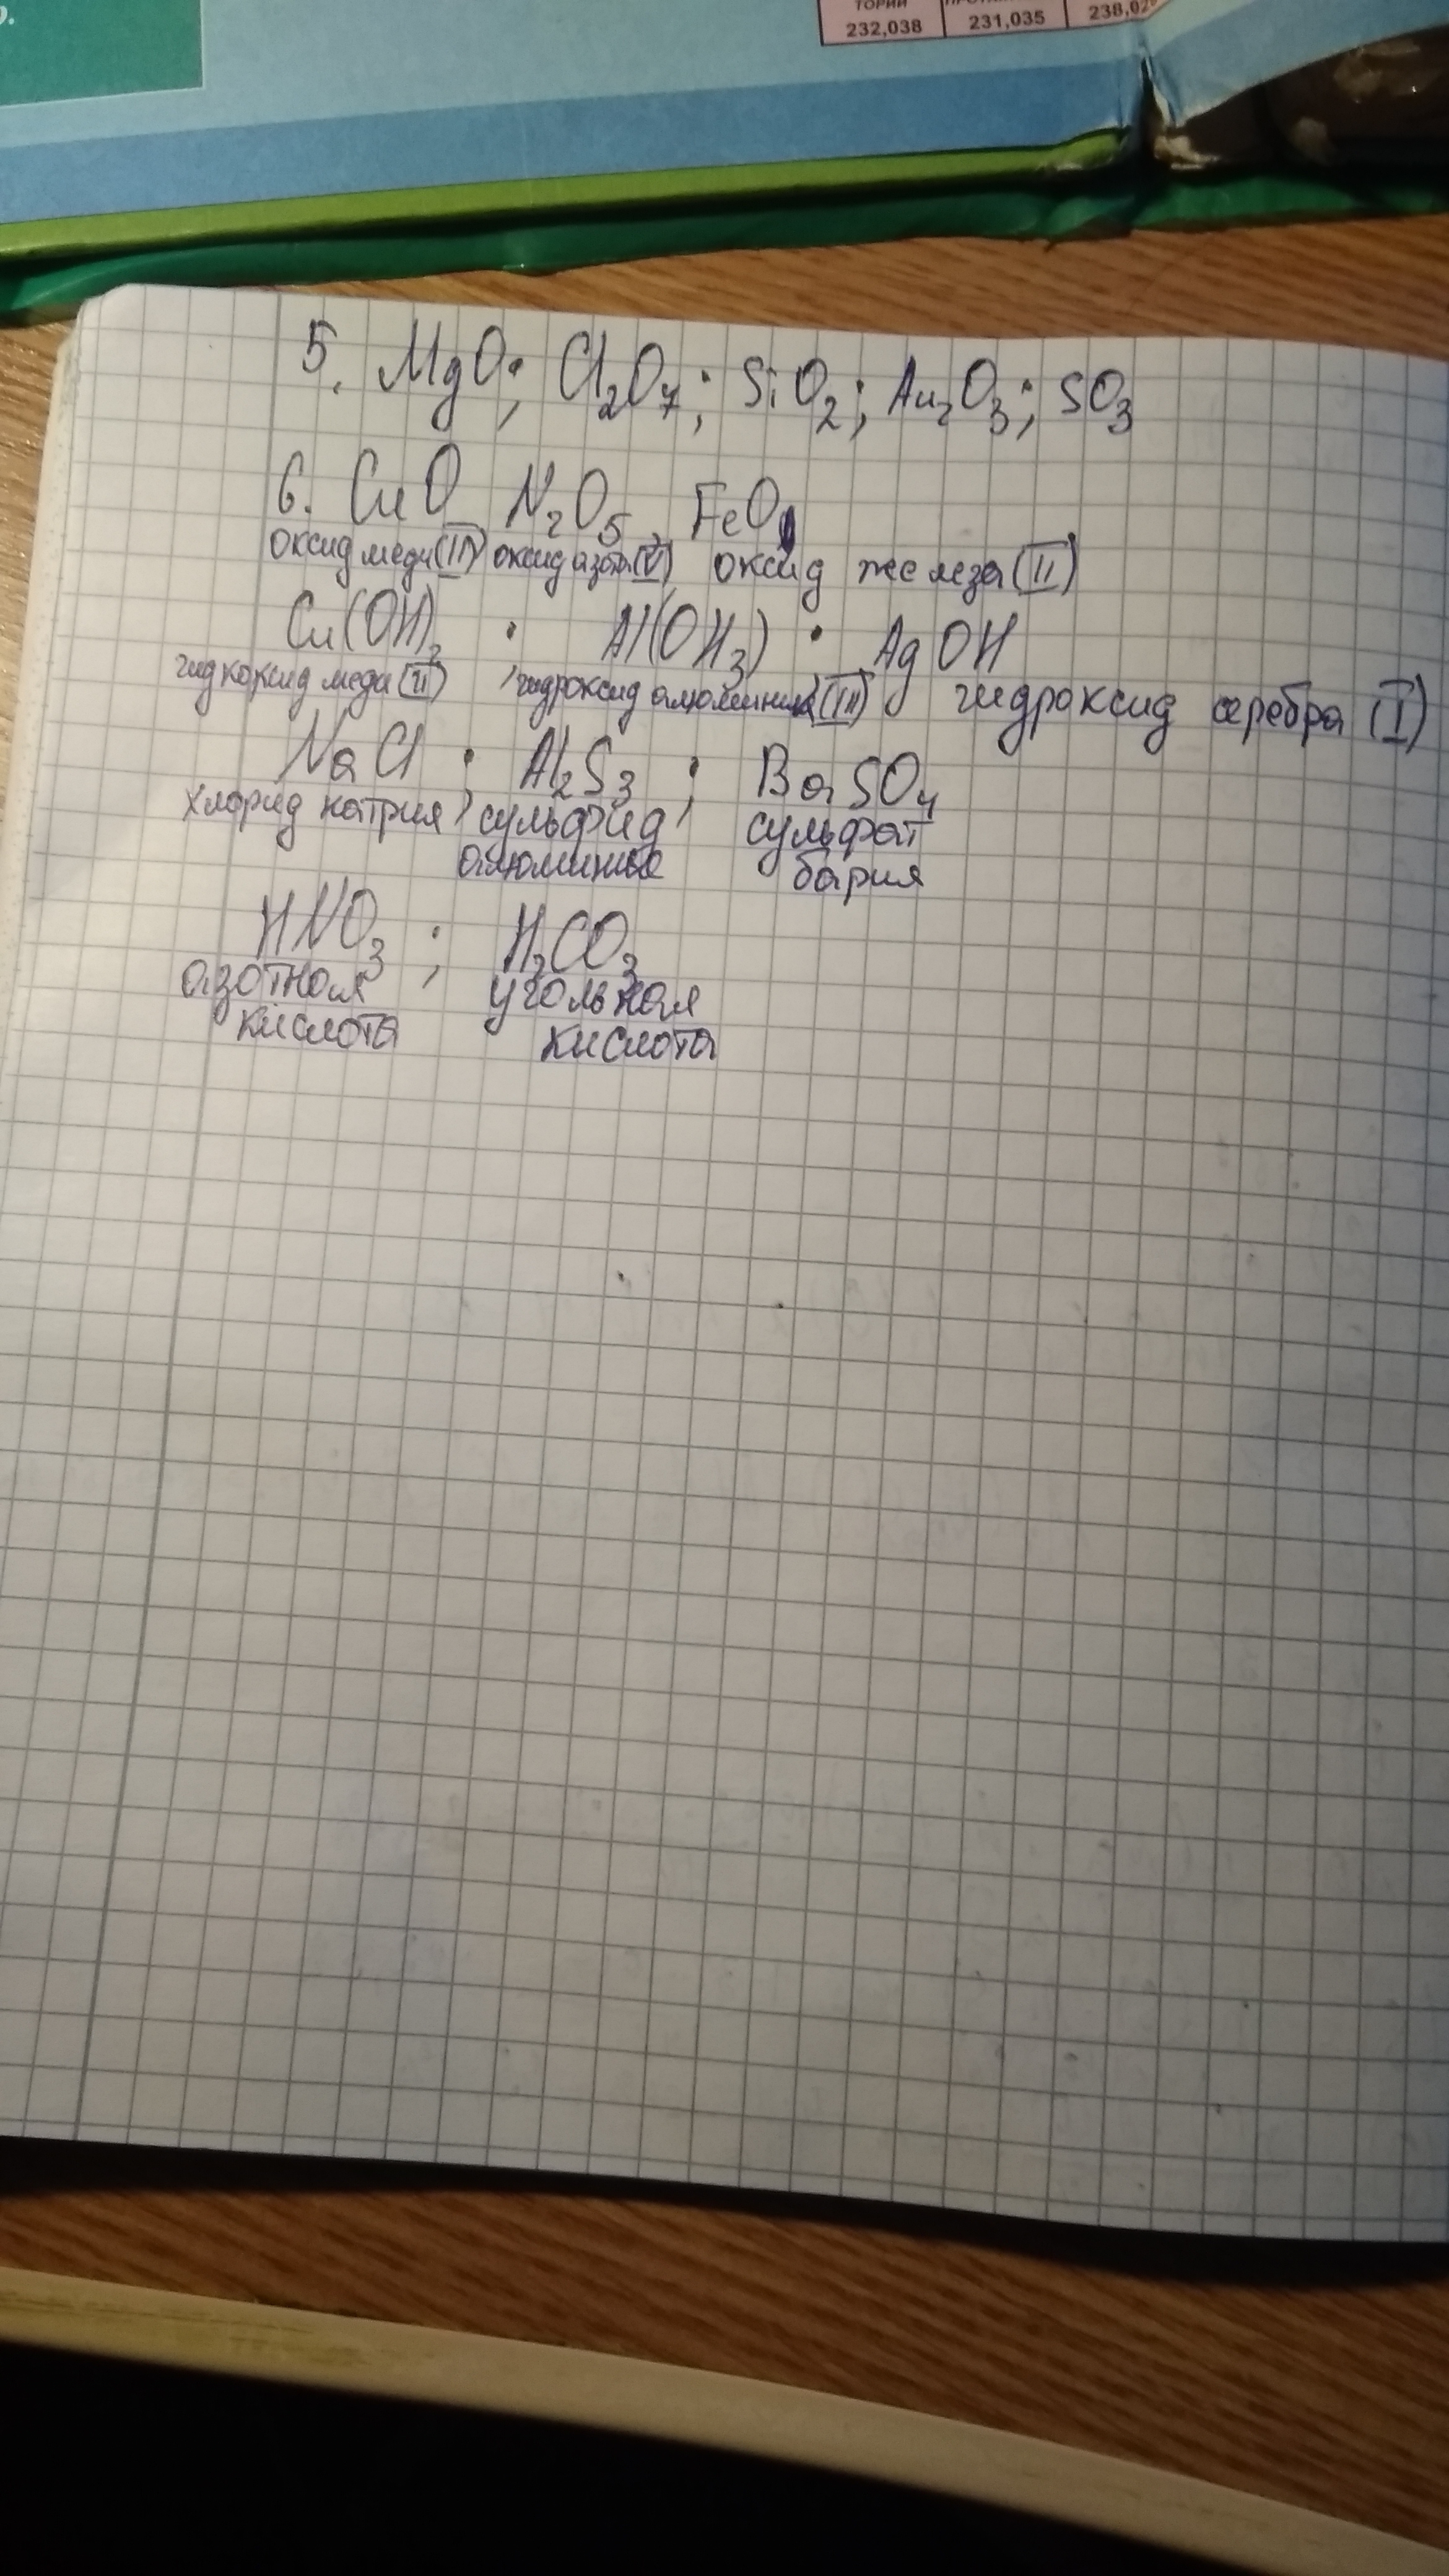 ТОРИЙ
232,038 231,035 238,02
5. MgO; Cl₂O₇; SiO₂; Au₂O₃; SO₃
6. CuO N₂O₅ FeO
оксид меди(II) оксид азота(V) оксид железа(II)
Cu(OH)₂ ; Al(OH₃) ; AgOH
гидкоксид меди(II) гидроксид алюминия(III) гидроксид серебра (I)
NaCl ; Al₂S₃ ; BaSO₄
хлорид натрия сульфид сульфат
алюминия бария
HNO₃ ; H₂CO₃
азотная угольная
кислота кислота